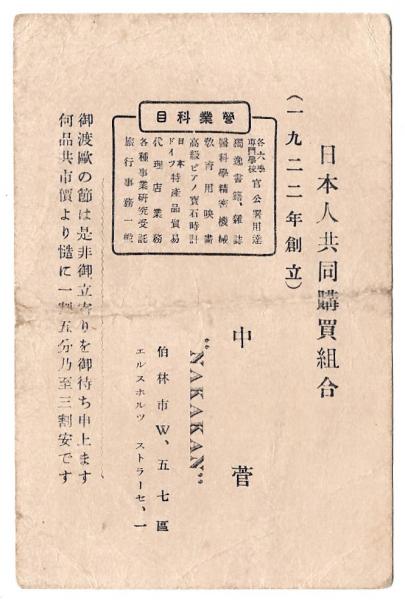 日本人共同購買組合
(一九二二年創立)
中菅
"NAKAKAN"
伯林市W、五七區
エルスホルツ ストラーセ、一
營業科目
各大學專門學校 官公署用達
獨逸書籍、雜誌
醫科學精密機械
敎育用映畵
高級ピアノ寶石時計
日本ドイツ特產品貿易
代理店業務
各種事業硏究受託
旅行事務一般
御渡歐の節は是非御立寄りを御待ち申上ます
何品共市價より慥に一割五分乃至三割安です